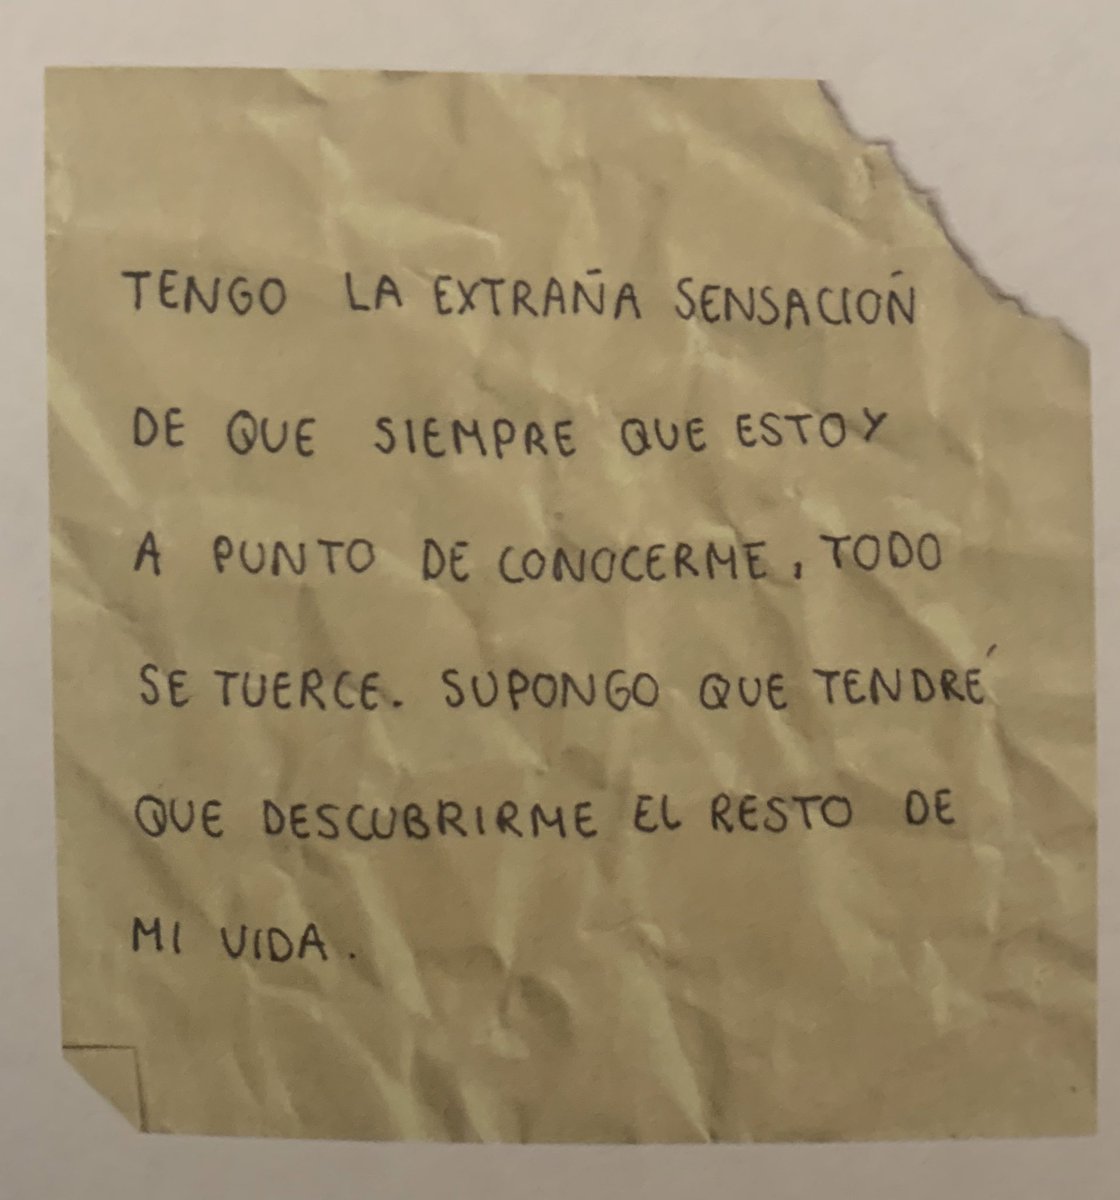 TENGO LA EXTRAÑA SENSACIÓN
DE QUE SIEMPRE QUE ESTOY
A PUNTO DE CONOCERME, TODO
SE TUERCE. SUPONGO QUE TENDRÉ
QUE DESCUBRIRME EL RESTO DE
MI VIDA.